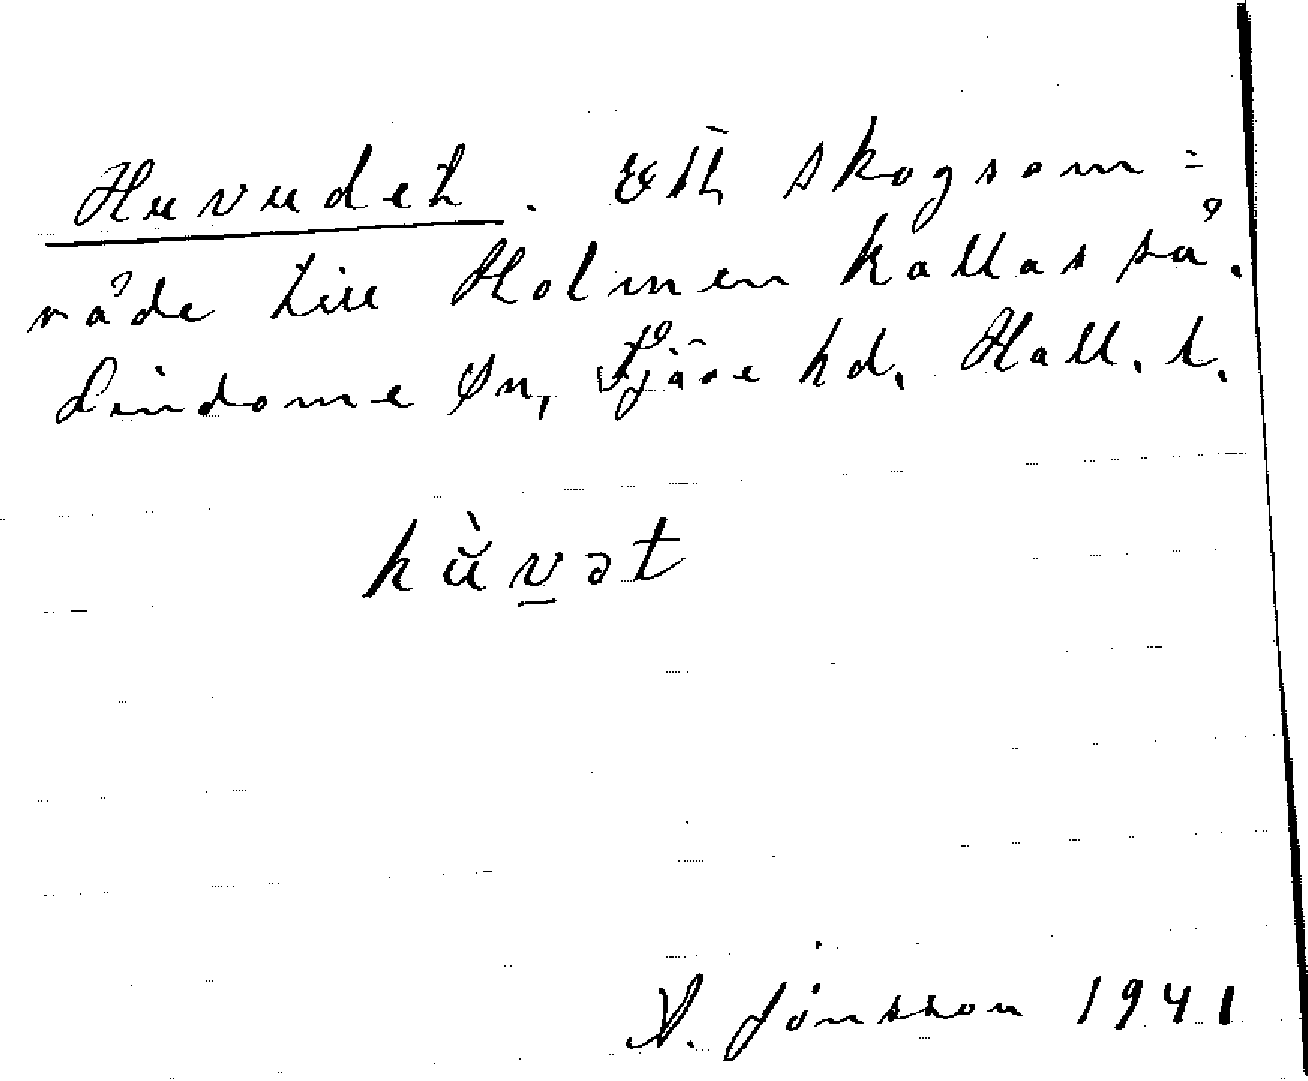 Huvudet. Ett skogsom=
råde till Holmen kallas så.
Lindome sn, Fjäre hd. Hall. l.
hùvət
A. Jönsson 1941